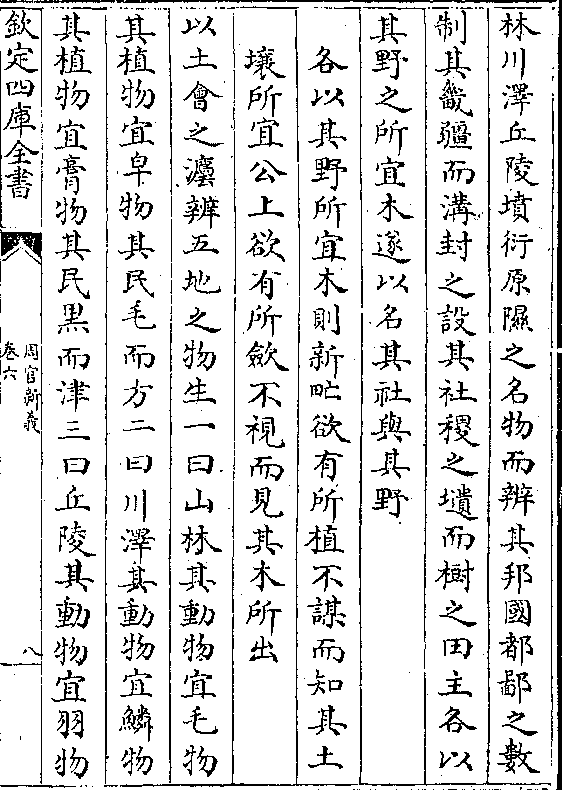 林川澤丘陵墳衍原隰之名物而辨其邦國都鄙之數
制其畿疆而溝封之設其社稷之壝而樹之田主各以
其野之所宜木遂以名其社與其野
各以其野所宜木則新甿欲有所植不謀而知其土
壤所宜公上欲有所斂不視而見其木所出
以土會之灋辨五地之物生一曰山林其動物宜毛物
其植物宜皁物其民毛而方二曰川澤其動物宜鱗物
其植物宜膏物其民黒而津三曰丘陵其動物宜羽物
欽定四庫全書
周官新義
卷六
八